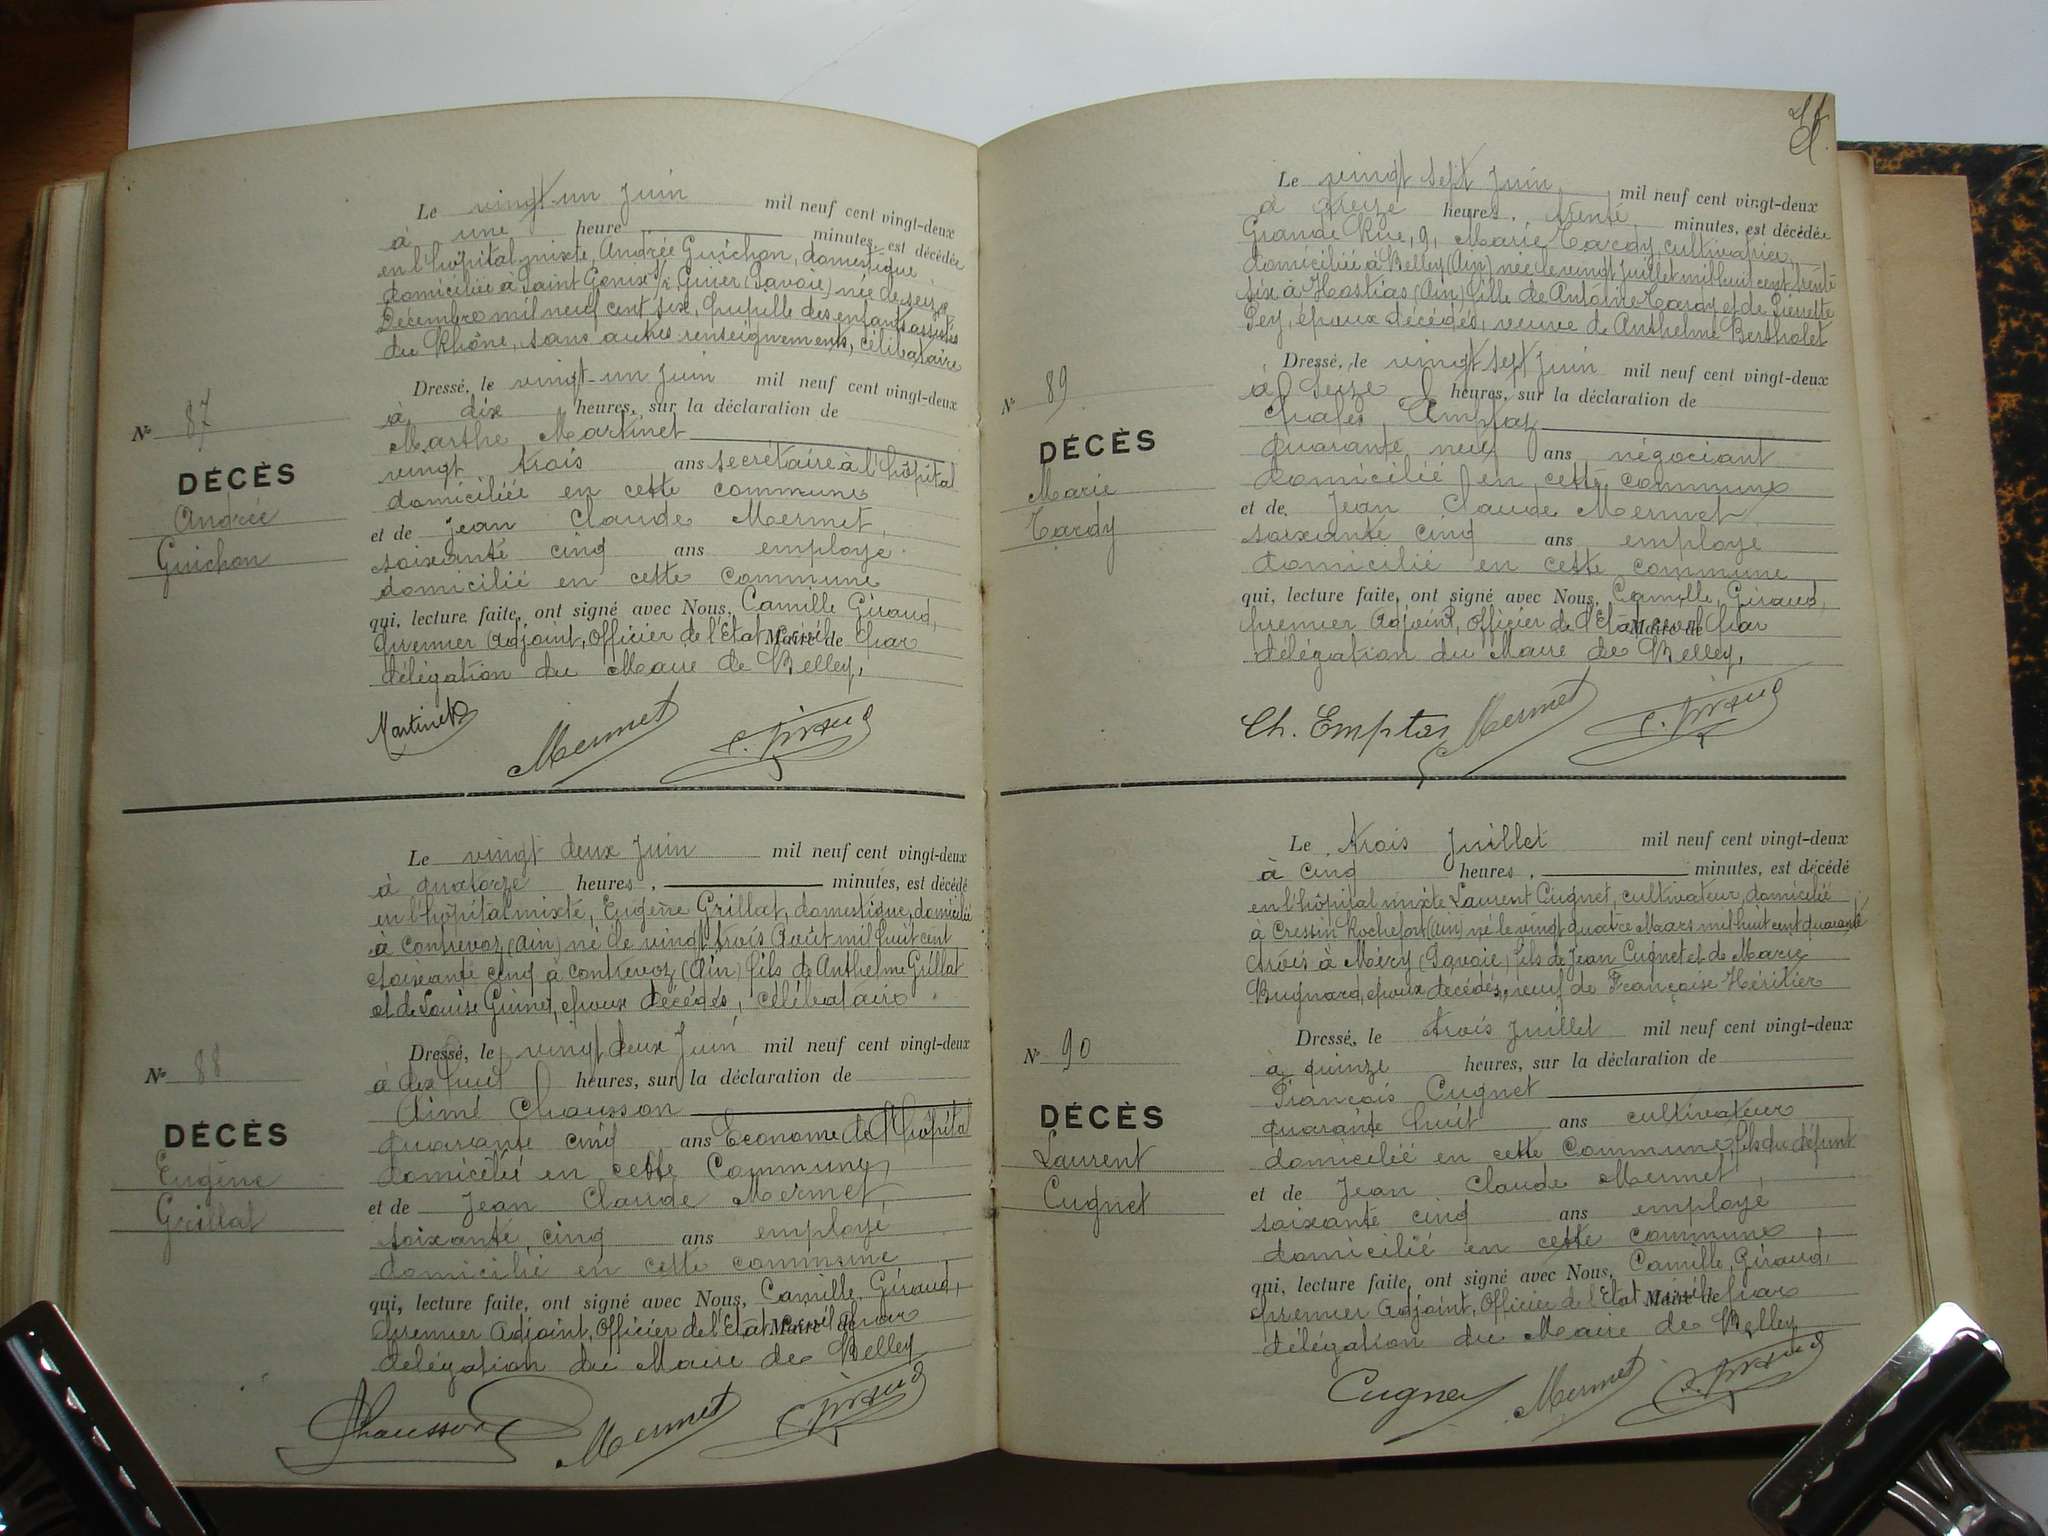 Le vingt-un Juin mil neuf cent vingt-deux
à une heure minutes, est décédée
en l'hôpital mixte, Andrée Guichon, domestique
domiciliée à Saint Genix s/ Guier (Savoie) née le seize
Décembre mil neuf cent six, pupille des enfants assistés
du Rhône, sans autres renseignements, célibataire
Dressé, le vingt-un Juin mil neuf cent vingt-deux
à dix heures, sur la déclaration de
Marthe Martinet
vingt trois ans secrétaire à l'hôpital
domiciliée en cette commune
et de Jean Claude Mermet,
soixante cinq ans employé
domicilié en cette commune
qui, lecture faite, ont signé avec Nous, Camille Giraud,
premier Adjoint, Officier de l'Etat civil par Maire de
délégation du Maire de Belley,
Martinet Mermet C. Giraud
N° 87
DÉCÈS
Andrée
Guichon
Le vingt deux Juin mil neuf cent vingt-deux
à quatorze heures, minutes, est décédé
en l'hôpital mixte, Eugène Grillat, domestique, domicilié
à Contrevoz (Ain) né le vingt trois Août mil huit cent
soixante cinq à Contrevoz (Ain) fils de Anthelme Grillat
et de Louise Guinet, époux décédés, célibataire
Dressé, le vingt deux Juin mil neuf cent vingt-deux
à dix huit heures, sur la déclaration de
Aimé Chausson
quarante cinq ans Econome de l'hôpital
domicilié en cette Commune
et de Jean Claude Mermet,
soixante cinq ans employé
domicilié en cette commune
qui, lecture faite, ont signé avec Nous, Camille Giraud,
premier Adjoint, Officier de l'Etat civil par Maire de
délégation du Maire de Belley
Chausson Mermet C. Giraud
N° 88
DÉCÈS
Eugène
Grillat
Le vingt sept Juin mil neuf cent vingt-deux
à heures, trente minutes, est décédée
Grande Rue, 9, Marie Tardy, cultivatrice,
domiciliée à Belley (Ain) née le vingt Juillet mil huit cent trente
six à Hostias (Ain) fille de Antoine Tardy et de Pierrette
Pey, époux décédés, veuve de Anthelme Bertholet
Dressé, le vingt sept Juin mil neuf cent vingt-deux
à seize heures, sur la déclaration de
Charles Emptoz
quarante neuf ans négociant
domicilié en cette commune
et de Jean Claude Mermet
soixante cinq ans employé
domicilié en cette commune
qui, lecture faite, ont signé avec Nous, Camille Giraud,
premier Adjoint, Officier de l'Etat civil par Maire de
délégation du Maire de Belley,
Ch. Emptoz Mermet C. Giraud
N° 89
DÉCÈS
Marie
Tardy
Le trois Juillet mil neuf cent vingt-deux
à cinq heures, minutes, est décédé
en l'hôpital mixte Laurent Cugnet, cultivateur, domicilié
à Cressin Rochefort (Ain) né le vingt quatre Mars mil huit cent quarante
trois à Méry (Savoie) fils de Jean Cugnet et de Marie
Bugnard, époux décédés, veuf de Françoise Héritier
Dressé, le trois Juillet mil neuf cent vingt-deux
à quinze heures, sur la déclaration de
François Cugnet
quarante huit ans cultivateur
domicilié en cette Commune, fils du défunt
et de Jean Claude Mermet
soixante cinq ans employé
domicilié en cette commune
qui, lecture faite, ont signé avec Nous, Camille Giraud,
premier Adjoint, Officier de l'Etat civil par Maire de
délégation du Maire de Belley
Cugnet Mermet C. Giraud
N° 90
DÉCÈS
Laurent
Cugnet